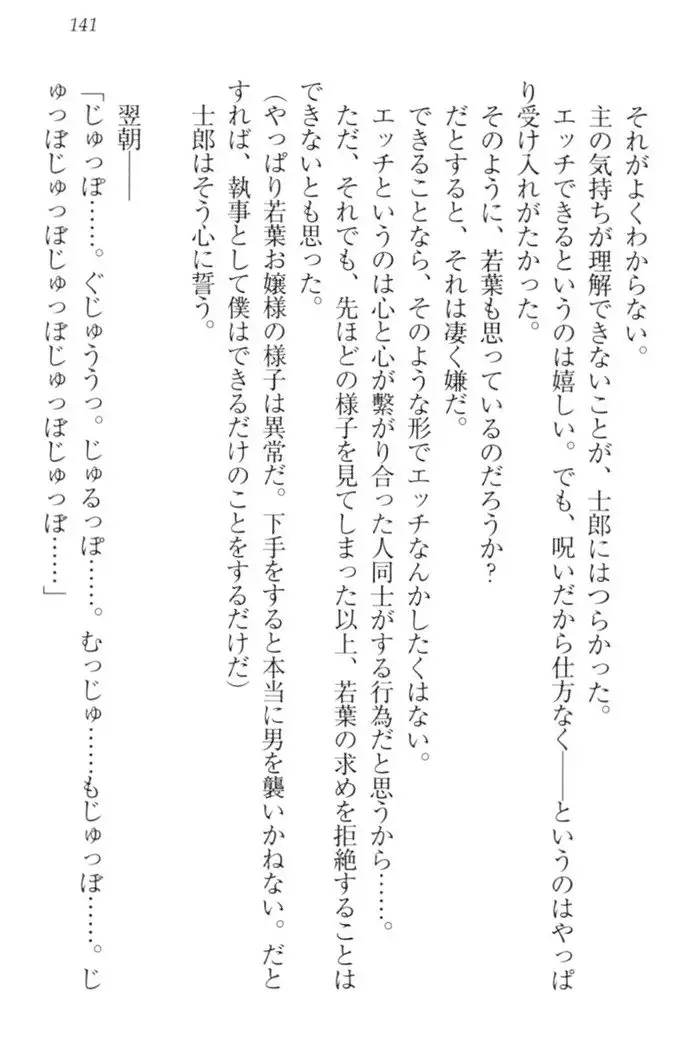 141
それがよくわからない。
主の気持ちが理解できないことが、士郎にはつらかった。
エッチできるというのは嬉しい。でも、呪いだから仕方なく――というのはやっぱ
り受け入れがたかった。
そのように、若葉も思っているのだろうか？
だとすると、それは凄く嫌だ。
できることなら、そのような形でエッチなんかしたくはない。
エッチというのは心と心が繋がり合った人同士がする行為だと思うから……。
ただ、それでも、先ほどの様子を見てしまった以上、若葉の求めを拒絶することは
できないとも思った。
（やっぱり若葉お嬢様の様子は異常だ。下手をすると本当に男を襲いかねない。だと
すれば、執事として僕はできるだけのことをするだけだ）
士郎はそう心に誓う。
翌朝――
「じゅっぽ……。ぐじゅううっ。じゅるっぽ……。むっじゅ……もじゅっぽ……。じ
ゅっぽじゅっぽじゅっぽじゅっぽじゅっぽ……」